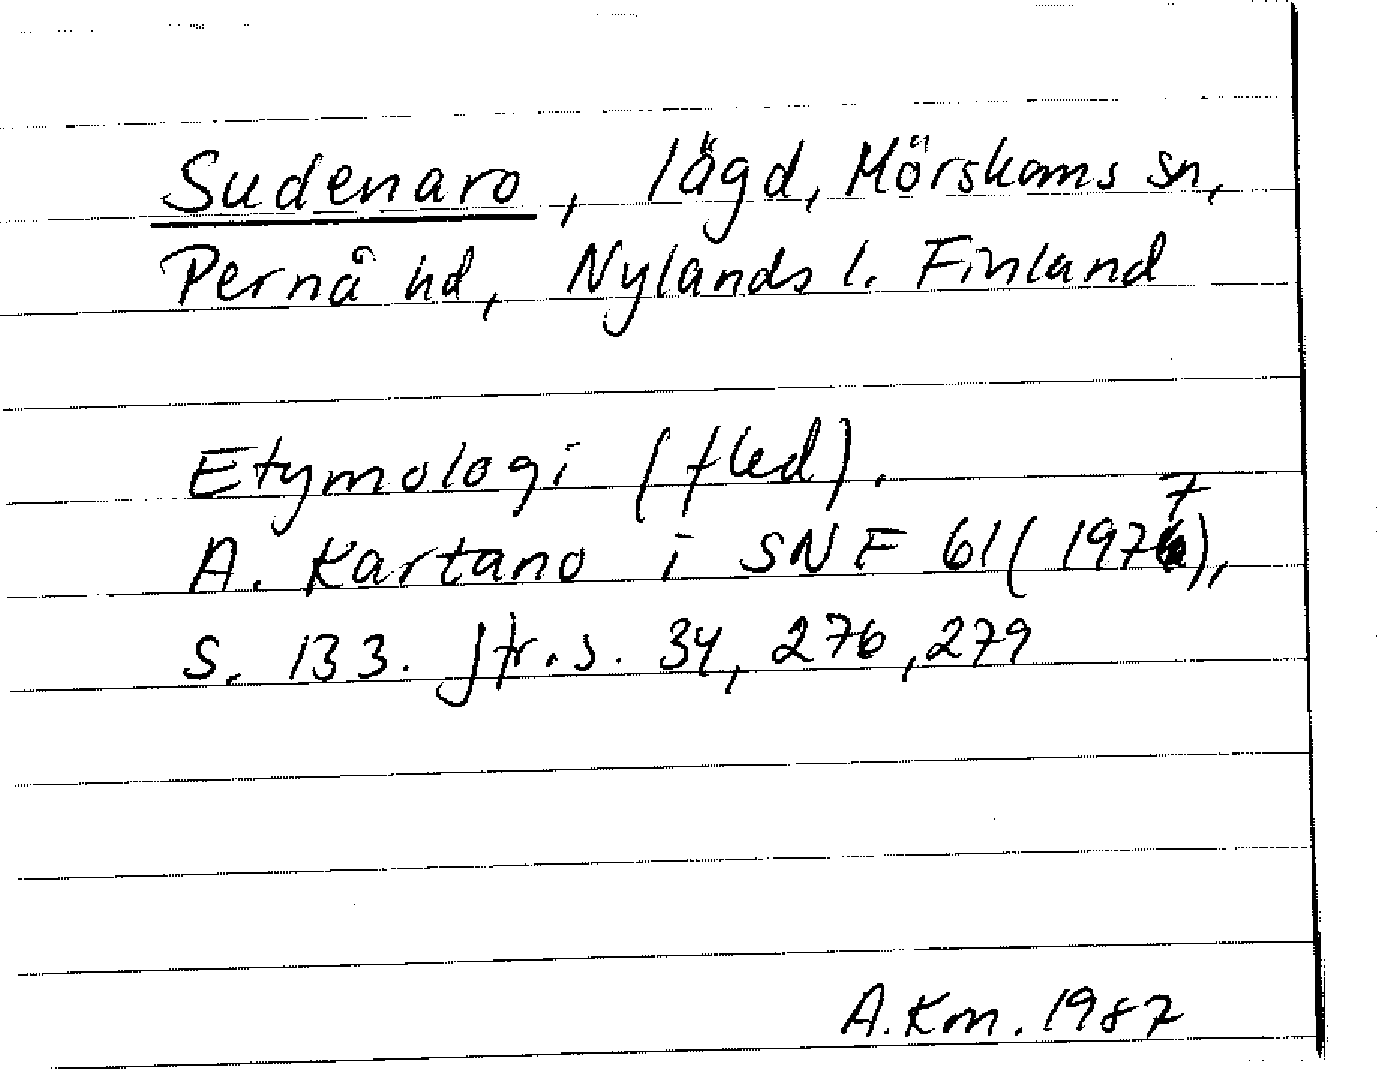 Sudenaro, lägd, Mörskoms sn,
Pernå hd, Nylands l. Finland
Etymologi (fled).
A. Kartano i SNF 61 (1977),
s. 133. Jfr. s. 34, 276, 279
A. Km. 1987